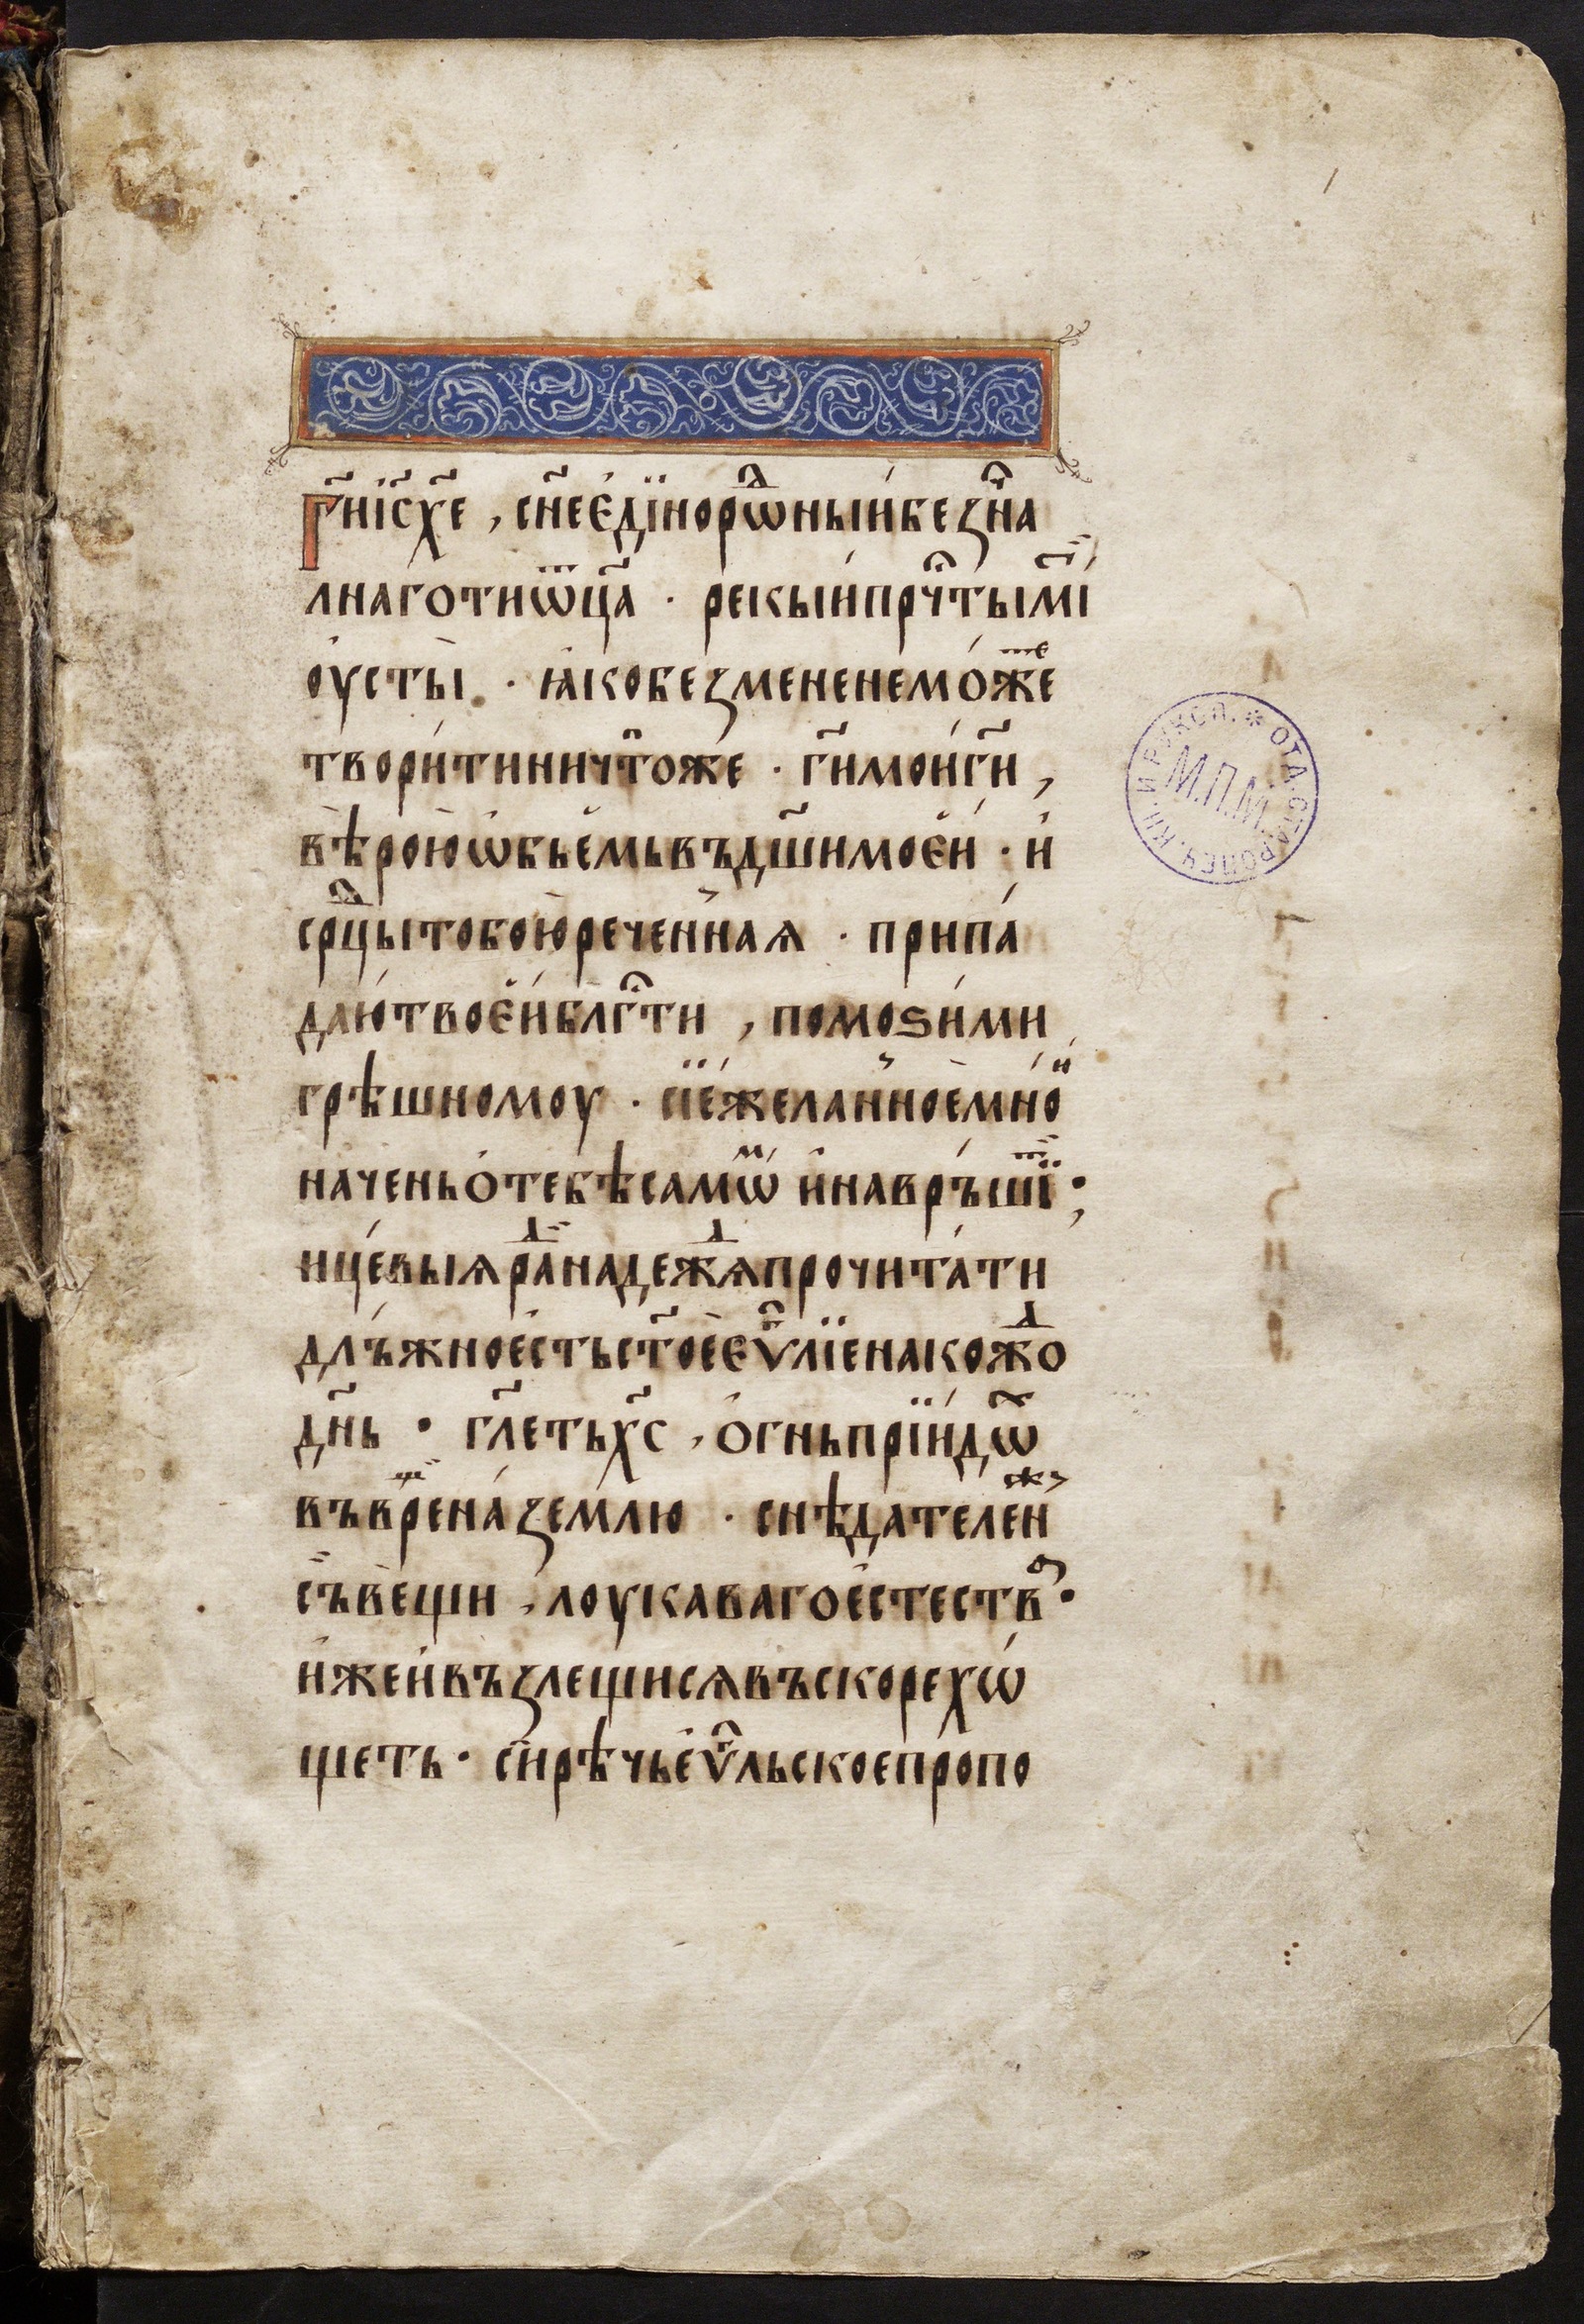 г҃ні҃сх҃е , сн҃еєдїнорⷣѡныйбеꙁна҃
лнаготиѿц҃а · рекыйпрчⷭ҇тымⷭ҇и
оустьі · ꙗкобеꙁмененеможеⷮ
творитиничтⷭ҇оже · гн҃имойгн҃и ,
вѣроюѡбьемьвъдш҃имоєй · й
срⷣцытобоюреченнаѧ · припа
даютвоєйблгⷭ҇ти , помоѕими
грѣшномоу · сїежеланноемно
наченьотебѣсамѡⷨ инавръшїⷮ ;
ицевыѧраⷣнадежⷣѧпрочитати
длъжноестьст҃оеєѵⷢ҇лїенакожⷣо
дн҃ь · гл҃етьх҃с , огньпрїидѡⷯ
въврⷳ҇енаꙁемлю · снѣдателенⷤ
съвещи , лоукавагоестествⷶ ·
ижеивъꙁлещисѧвъскорехѡ
щеть · сирѣчьеѵⷢ҇льскоепропо
ОТД. СТАРОПЕЧ. КН. И РУКОП. *
М.П.М.